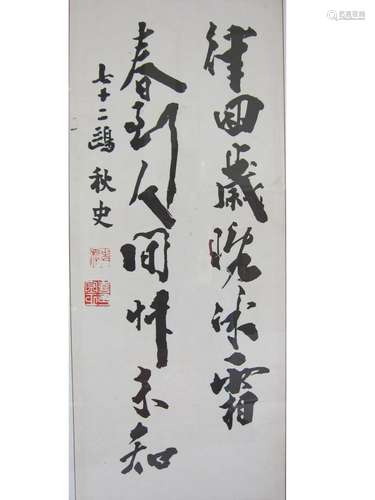 律回歲晚冰霜
春到人間艸木知
七十二鷗秋史